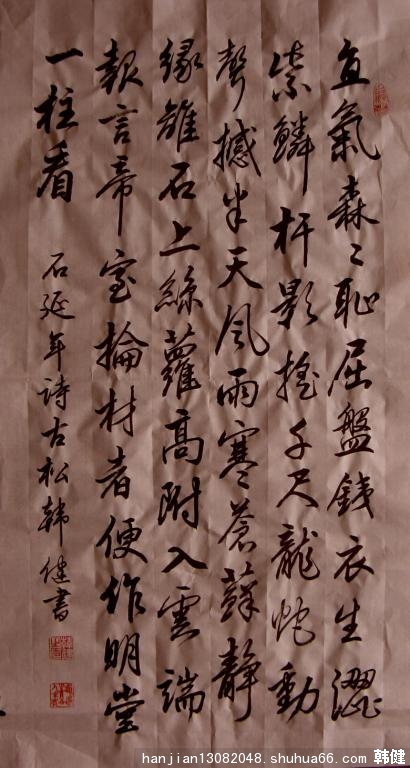 直氣森〻恥屈盤鐵衣生澀
紫鱗杆影搖千尺龍蛇動
聲撼半天風雨寒蒼蘚靜
緣離石上絲蘿高附入雲端
報言帝室掄材者便作明堂
一柱看
石延年詩古松韓健書
hanjian13082048.shuhua66.com 韩健